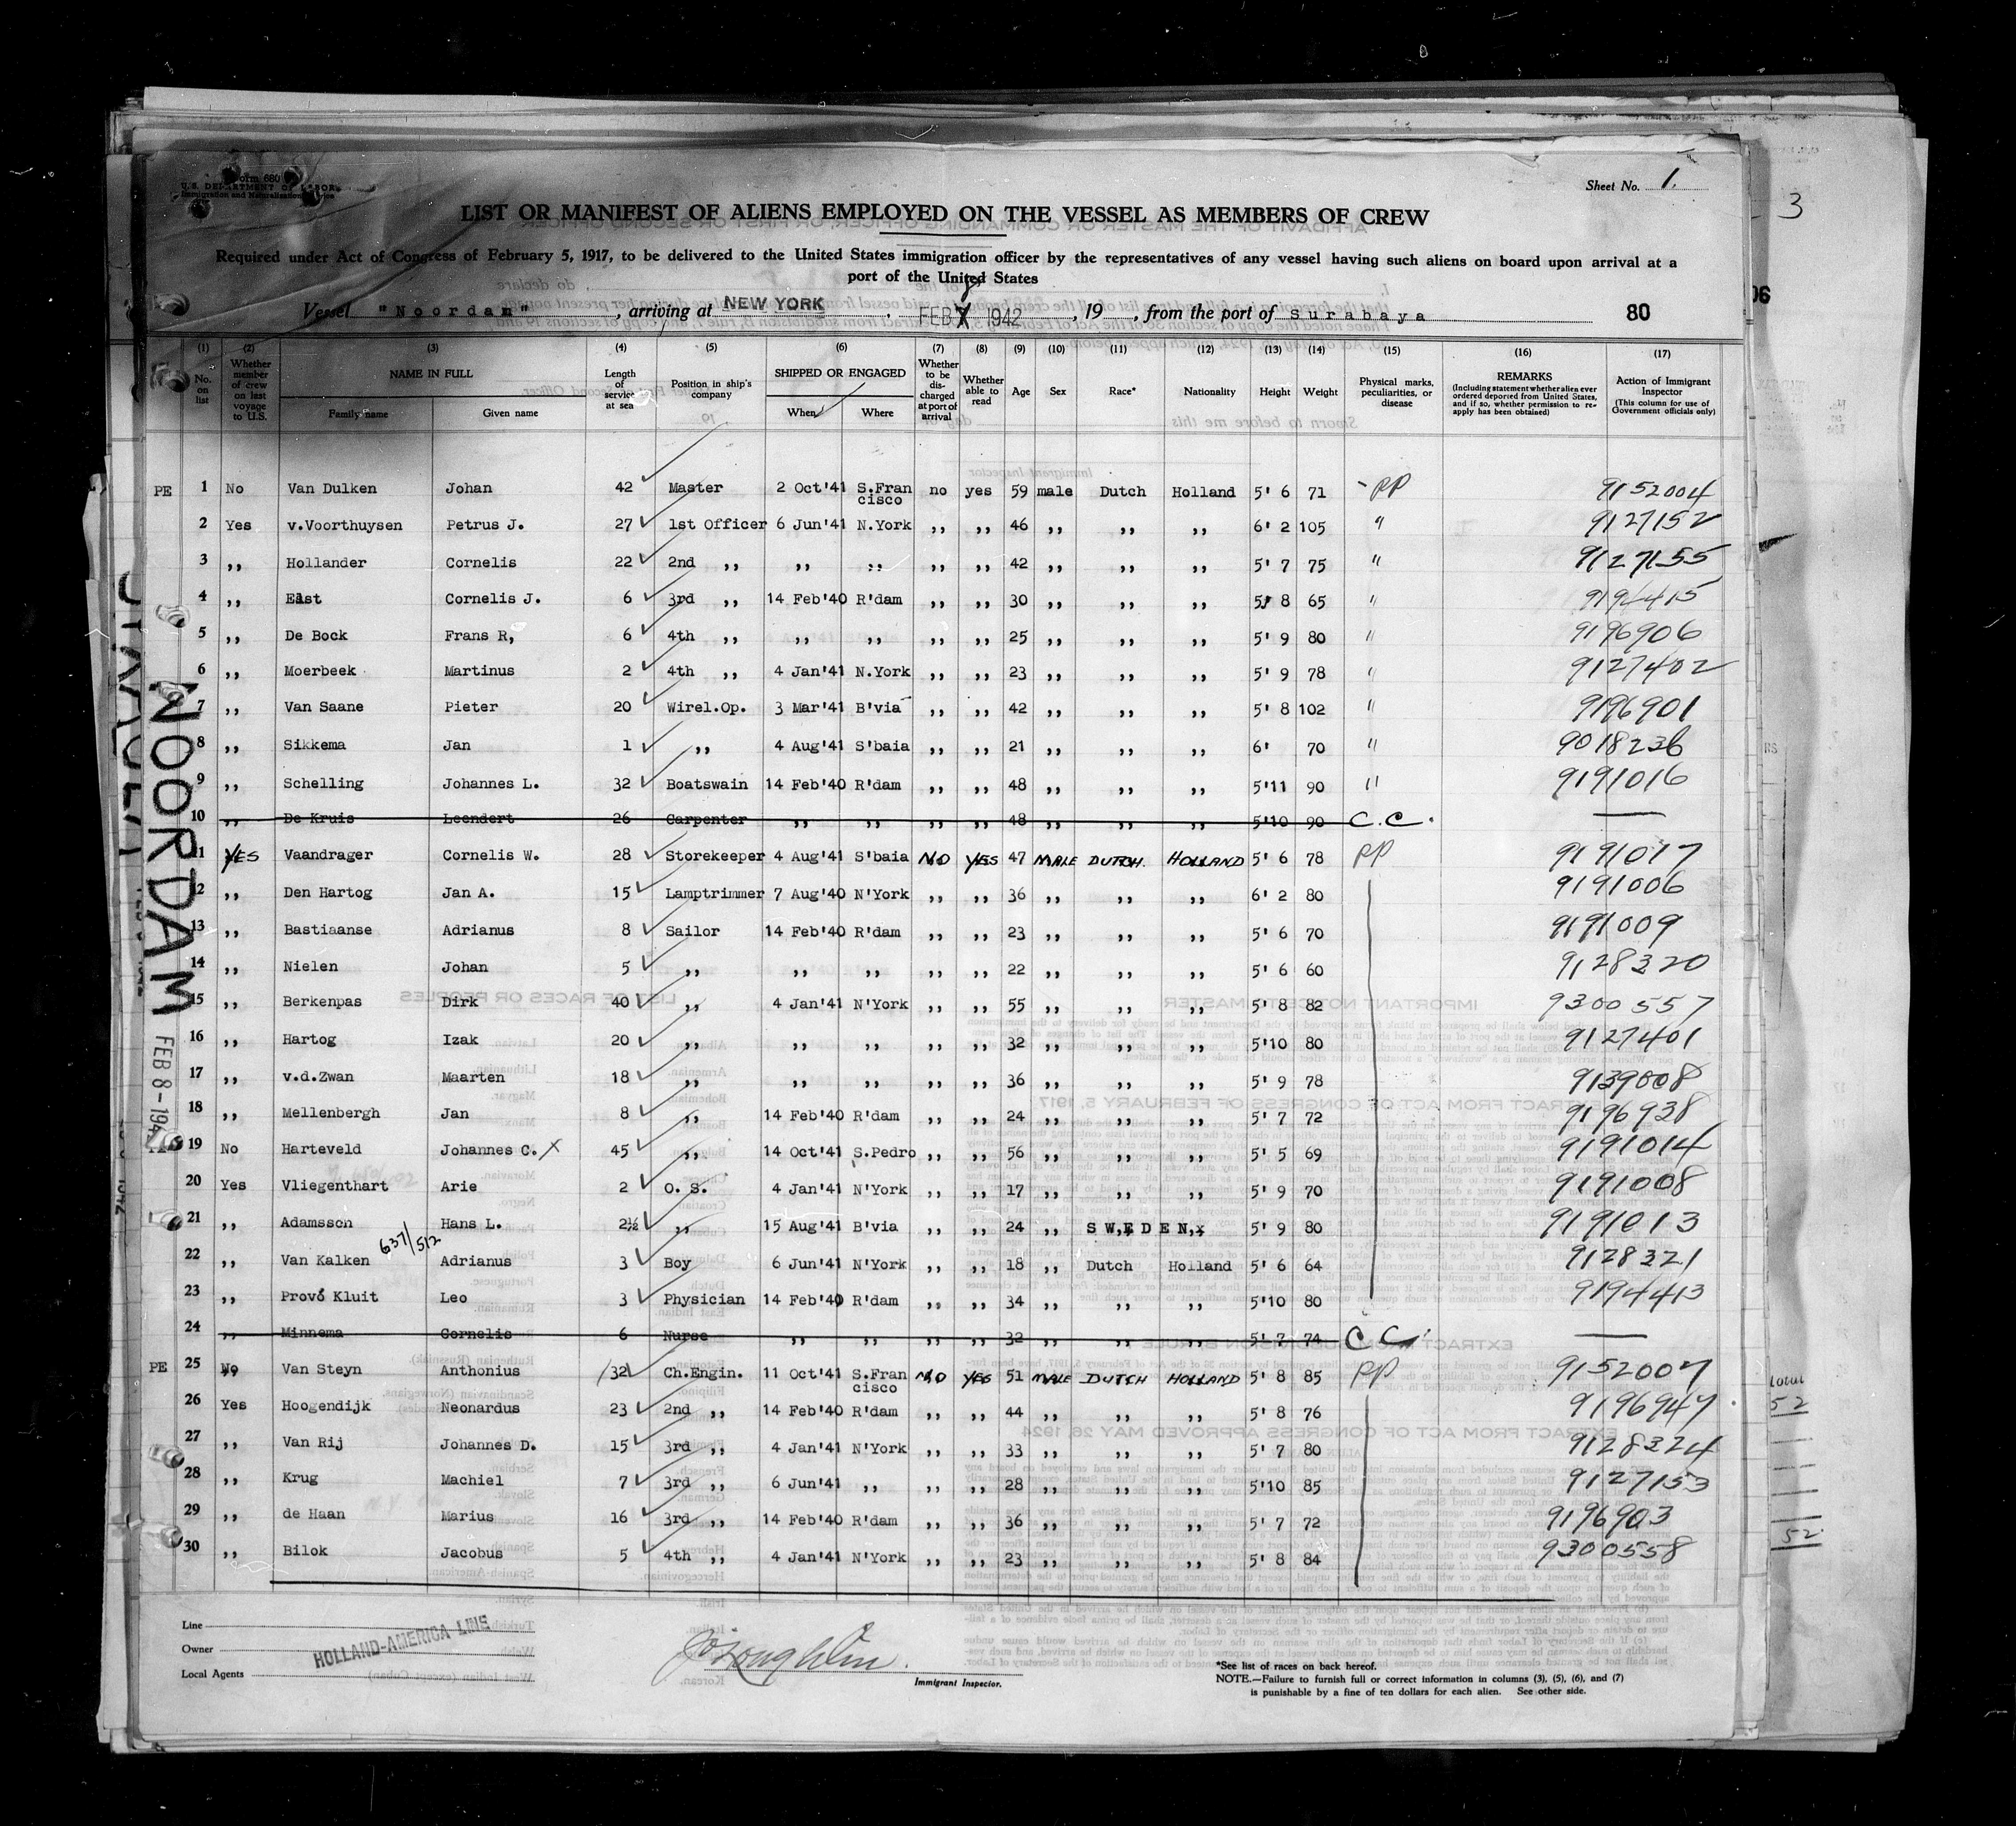 Form 680
U.S. DEPARTMENT OF LABOR
Immigration and Naturalization Service
Sheet No. 1.
3
LIST OR MANIFEST OF ALIENS EMPLOYED ON THE VESSEL AS MEMBERS OF CREW
Required under Act of Congress of February 5, 1917, to be delivered to the United States immigration officer by the representatives of any vessel having such aliens on board upon arrival at a
port of the United States
Vessel "Noordam", arriving at NEW YORK, FEB 7 1942, 19, from the port of surabaya 80
(1) (2) (3) (4) (5) (6) (7) (8) (9) (10) (11) (12) (13) (14) (15) (16) (17)
No. on list Whether member of crew on last voyage to U.S. NAME IN FULL Family name Given name Length of service at sea Position in ship's company SHIPPED OR ENGAGED When Where Whether to be discharged at port of arrival Whether able to read Age Sex Race* Nationality Height Weight Physical marks, peculiarities, or disease REMARKS (Including statement whether alien ever ordered deported from United States, and if so, whether permission to reapply has been obtained) Action of Immigrant Inspector (This column for use of Government officials only)
PE 1 No Van Dulken Johan 42 Master 2 Oct'41 S.Fran cisco no yes 59 male Dutch Holland 5' 6 71 PP 9152004
2 Yes v.Voorthuysen Petrus J. 27 1st Officer 6 Jun'41 N.York ,, ,, 46 ,, ,, ,, 6' 2 105 " 9127152
3 ,, Hollander Cornelis 22 2nd ,, ,, ,, ,, ,, 42 ,, ,, ,, 5' 7 75 " 9127155
4 ,, Elst Cornelis J. 6 3rd ,, 14 Feb'40 R'dam ,, ,, 30 ,, ,, ,, 5' 8 65 " 9194415
5 ,, De Bock Frans R, 6 4th ,, ,, ,, ,, ,, 25 ,, ,, ,, 5' 9 80 " 9196906
6 ,, Moerbeek Martinus 2 4th ,, 4 Jan'41 N.York ,, ,, 23 ,, ,, ,, 5' 9 78 " 9127402
7 ,, Van Saane Pieter 20 Wirel.Op. 3 Mar'41 B'via ,, ,, 42 ,, ,, ,, 5' 8 102 " 9196901
8 ,, Sikkema Jan 1 ,, 4 Aug'41 S'baia ,, ,, 21 ,, ,, ,, 6' 70 " 9018236
9 ,, Schelling Johannes L. 32 Boatswain 14 Feb'40 R'dam ,, ,, 48 ,, ,, ,, 5'11 90 " 9191016
10 ,, De Kruis Leendert 26 Carpenter ,, ,, ,, ,, 48 ,, ,, ,, 5'10 90 C.C. —
11 YES Vaandrager Cornelis W. 28 Storekeeper 4 Aug'41 S'baia NO YES 47 MALE DUTCH. HOLLAND 5' 6 78 PP 9191017
12 ,, Den Hartog Jan A. 15 Lamptrimmer 7 Aug'40 N'York ,, ,, 36 ,, ,, ,, 6' 2 80 9191006
13 ,, Bastiaanse Adrianus 8 Sailor 14 Feb'40 R'dam ,, ,, 23 ,, ,, ,, 5' 6 70 9191009
14 ,, Nielen Johan 5 ,, ,, ,, ,, ,, 22 ,, ,, ,, 5' 6 60 9128320
15 ,, Berkenpas Dirk 40 ,, 4 Jan'41 N'York ,, ,, 55 ,, ,, ,, 5' 8 82 9300557
16 ,, Hartog Izak 20 ,, ,, ,, ,, ,, 32 ,, ,, ,, 5'10 80 9127401
17 ,, v.d.Zwan Maarten 18 ,, ,, ,, ,, ,, 36 ,, ,, ,, 5' 9 78 9139008
18 ,, Mellenbergh Jan 8 ,, 14 Feb'40 R'dam ,, ,, 24 ,, ,, ,, 5' 7 72 9196938
19 No Harteveld Johannes C. X 45 ,, 14 Oct'41 S.Pedro ,, ,, 56 ,, ,, ,, 5' 5 69 9191014
20 Yes Vliegenthart Arie 2 O. S. 4 Jan'41 N'York ,, ,, 17 ,, ,, ,, 5' 9 70 9191008
21 ,, Adamsson Hans L. 2½ ,, 15 Aug'41 B'via ,, ,, 24 ,, SWEDEN 5' 9 80 9191013
637/512
22 ,, Van Kalken Adrianus 3 Boy 6 Jun'41 N'York ,, ,, 18 ,, Dutch Holland 5' 6 64 9128321
23 ,, Provó Kluit Leo 3 Physician 14 Feb'40 R'dam ,, ,, 34 ,, ,, ,, 5'10 80 9194413
24 ,, Minnema Cornelis 6 Nurse ,, ,, ,, ,, 32 ,, ,, ,, 5' 7 74 C C. —
PE 25 No Van Steyn Anthonius 32 Ch.Engin. 11 Oct'41 S.Fran cisco NO YES 51 MALE DUTCH HOLLAND 5' 8 85 PP 9152007
26 Yes Hoogendijk Neonardus 23 2nd ,, 14 Feb'40 R'dam ,, ,, 44 ,, ,, ,, 5' 8 76 9196947
27 ,, Van Rij Johannes D. 15 3rd ,, 4 Jan'41 N'York ,, ,, 33 ,, ,, ,, 5' 7 80 9128324
28 ,, Krug Machiel 7 3rd ,, 6 Jun'41 ,, ,, ,, 28 ,, ,, ,, 5'10 85 9127153
29 ,, de Haan Marius 16 3rd ,, 14 Feb'40 R'dam ,, ,, 36 ,, ,, ,, 5' 7 72 9196903
30 ,, Bilok Jacobus 5 4th ,, 4 Jan'41 N'York ,, ,, 23 ,, ,, ,, 5' 8 84 9300558
NOORDAM FEB 8-194
52
52
Line
Owner HOLLAND-AMERICA LINE
Local Agents
Immigrant Inspector.
*See list of races on back hereof.
NOTE.—Failure to furnish full or correct information in columns (3), (5), (6), and (7)
is punishable by a fine of ten dollars for each alien. See other side.